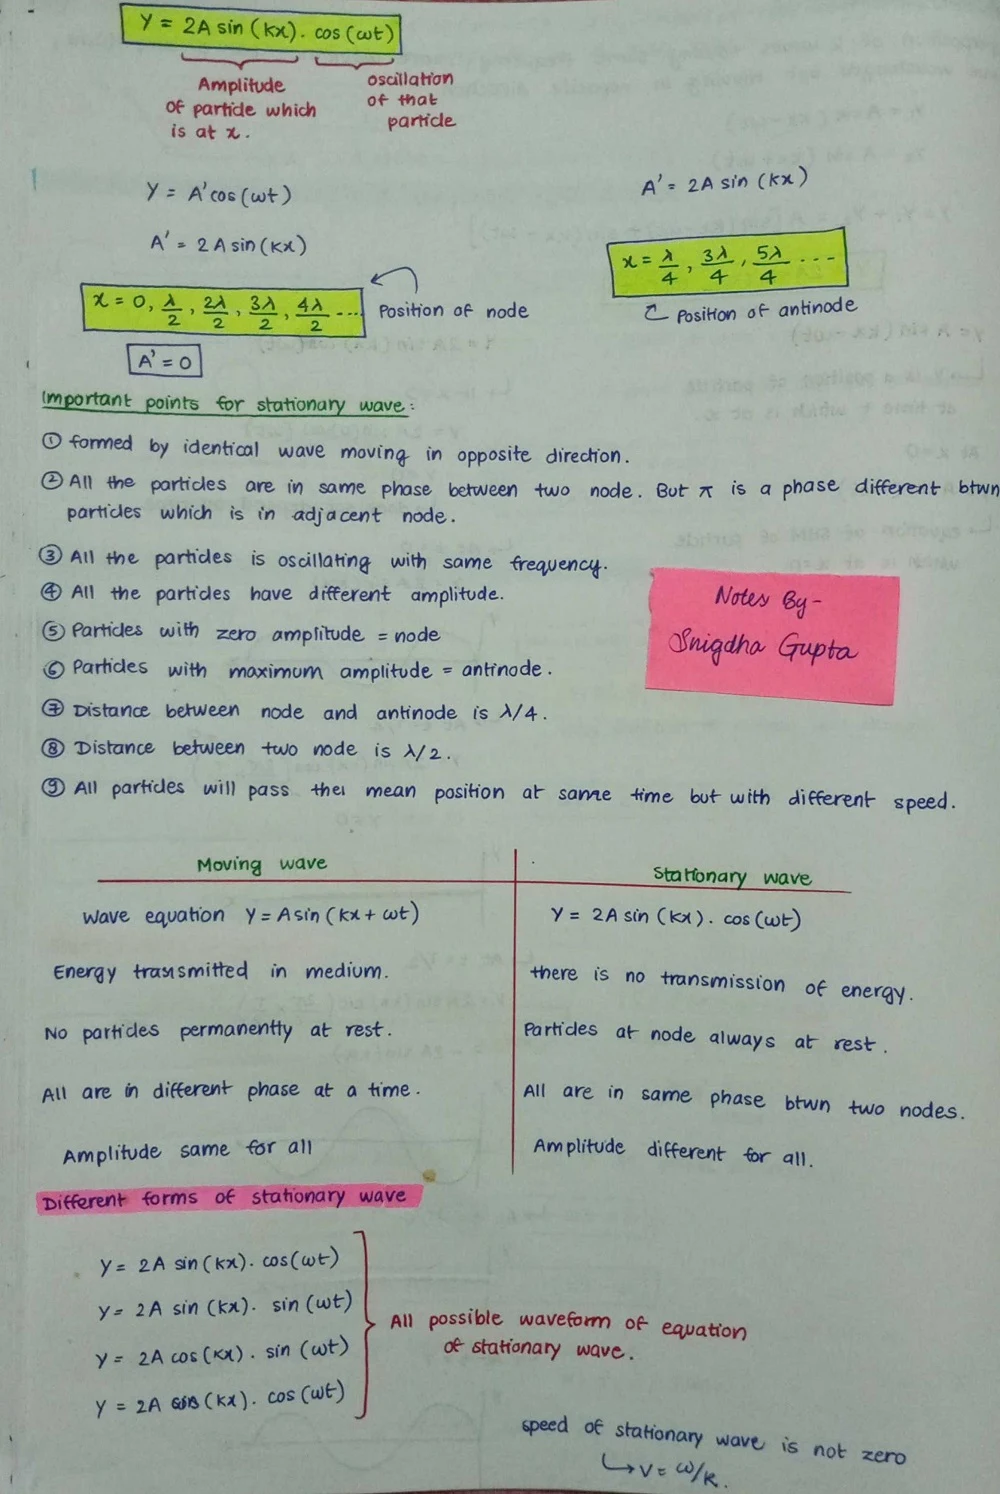 Y = 2A sin (kx). cos (ωt)
Amplitude of particle which is at x.
oscillation of that particle
Y = A' cos (ωt)
A' = 2A sin (kx)
A' = 2A sin (kx)
x = 0, λ/2, 2λ/2, 3λ/2, 4λ/2 ....
Position of node
A' = 0
x = λ/4, 3λ/4, 5λ/4 ....
Position of antinode
Important points for stationary wave :
① formed by identical wave moving in opposite direction.
② All the particles are in same phase between two node. But π is a phase different btwn
particles which is in adjacent node.
③ All the particles is oscillating with same frequency.
④ All the particles have different amplitude.
⑤ Particles with zero amplitude = node
⑥ Particles with maximum amplitude = antinode.
⑦ Distance between node and antinode is λ/4.
⑧ Distance between two node is λ/2.
⑨ All particles will pass thei mean position at same time but with different speed.
Notes By-
Snigdha Gupta
Moving wave
Stationary wave
Wave equation Y = A sin (kx + ωt)
Y = 2A sin (kx). cos (ωt)
Energy transmitted in medium.
there is no transmission of energy.
No particles permanently at rest.
Particles at node always at rest.
All are in different phase at a time.
All are in same phase btwn two nodes.
Amplitude same for all
Amplitude different for all.
Different forms of stationary wave
Y = 2A sin (kx). cos (ωt)
Y = 2A sin (kx). sin (ωt)
Y = 2A cos (kx). sin (ωt)
Y = 2A cos (kx). cos (ωt)
All possible waveform of equation
of stationary wave.
speed of stationary wave is not zero
↳ V = ω/k.